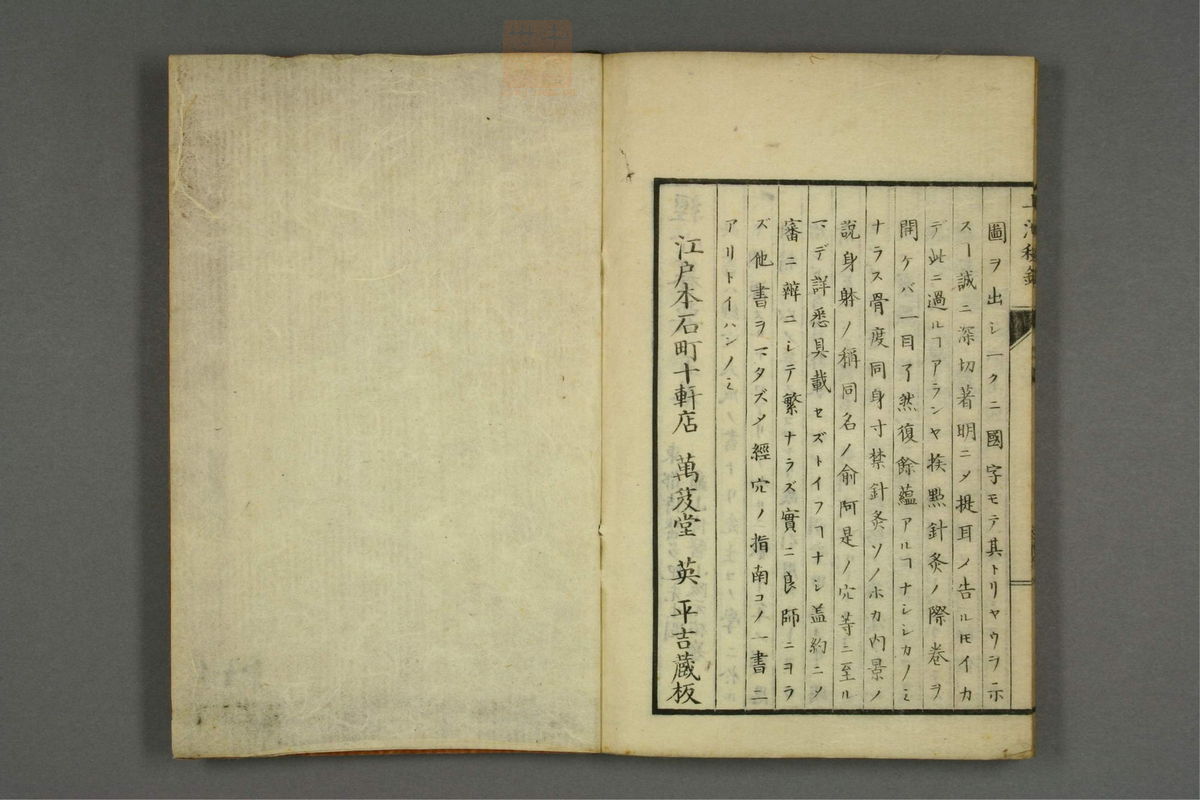 圖ヲ出シ一々ニ國字モテ其トリヤウヲ示
スヿ誠ニ深切著明ニメ提耳メ告ルモイカ
デ此ニ過ルヿアランヤ揆點針灸ノ際卷ヲ
開ケバ一目了然復餘蘊アルヿナシシカノミ
ナラス骨度同身寸禁針灸ソノホカ内景ノ
説身躰ノ稱同名ノ俞阿是ノ穴等ニ至ル
マデ詳悉具載セズトイフヿナシ盖約ニメ
審ニ辨ニシテ繁ナラズ實ニ良師ニヨラ
ズ他書ヲマタズメ經穴ノ指南コノ一書ニ
アリトイハンノミ
江戸本石町十軒店 萬笈堂 英 平吉藏板